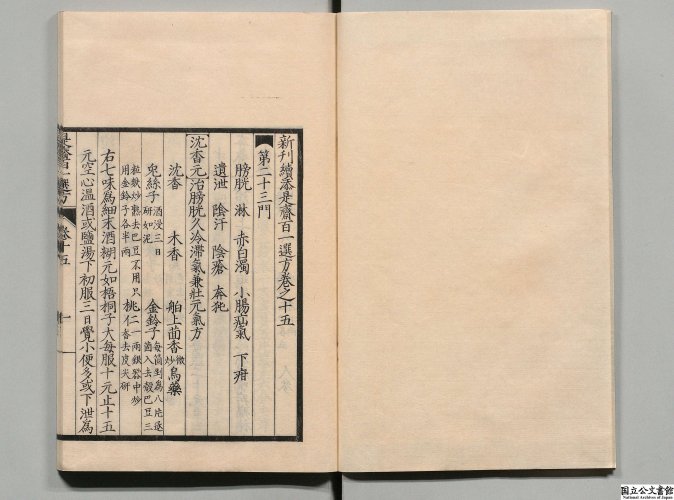 新刊續添是齋百一選方卷之十五
第二十三門
膀胱 淋 赤白濁 小腸疝氣 下疳
遺泄 陰汗 陰瘡 奔豘
沈香元治膀胱久冷滯氣兼壯元氣方
沈香 木香 舶上茴香微炒 烏藥
兔絲子酒浸三日研如泥 金鈴子每箇剉爲八片逐箇入去殼巴豆三
粒麩炒熟去巴豆不用只用金鈴子各半兩 桃仁一兩銀器中炒香去皮尖研
右七味爲細末酒糊元如梧桐子大每服十元止十五
元空心温酒或鹽湯下初服三日覺小便多或下泄爲
百一選方 卷十五 一
国立公文書館
National Archives of Japan